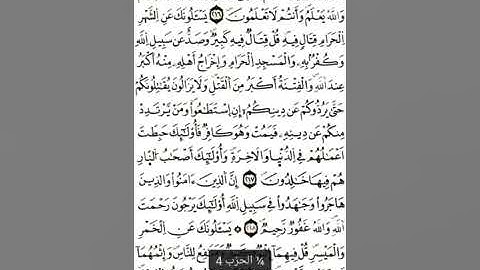 وَاللَّهُ يَعْلَمُ وَأَنتُمْ لَا تَعْلَمُونَ ۝٢١٦ يَسْـَٔلُونَكَ عَنِ الشَّهْرِ
الْحَرَامِ قِتَالٍ فِيهِ قُلْ قِتَالٌ فِيهِ كَبِيرٌ وَصَدٌّ عَن سَبِيلِ اللَّهِ
وَكُفْرٌ بِهِۦ وَالْمَسْجِدِ الْحَرَامِ وَإِخْرَاجُ أَهْلِهِۦ مِنْهُ أَكْبَرُ
عِندَ اللَّهِ وَالْفِتْنَةُ أَكْبَرُ مِنَ الْقَتْلِ وَلَا يَزَالُونَ يُقَٰتِلُونَكُمْ
حَتَّىٰ يَرُدُّوكُمْ عَن دِينِكُمْ إِنِ اسْتَطَٰعُوا وَمَن يَرْتَدِدْ
مِنكُمْ عَن دِينِهِۦ فَيَمُتْ وَهُوَ كَافِرٌ فَأُوْلَٰٓئِكَ حَبِطَتْ
أَعْمَٰلُهُمْ فِي الدُّنْيَا وَالْأَخِرَةِ وَأُوْلَٰٓئِكَ أَصْحَٰبُ النَّارِ
هُمْ فِيهَا خَٰلِدُونَ ۝٢١٧ إِنَّ الَّذِينَ ءَامَنُوا وَالَّذِينَ
هَاجَرُوا وَجَٰهَدُوا فِي سَبِيلِ اللَّهِ أُوْلَٰٓئِكَ يَرْجُونَ رَحْمَتَ
اللَّهِ وَاللَّهُ غَفُورٌ رَّحِيمٌ ۝٢١٨ ۞ يَسْـَٔلُونَكَ عَنِ الْخَمْرِ
وَالْمَيْسِرِ قُلْ فِيهِمَا إِثْمٌ كَبِيرٌ وَمَنَٰفِعُ لِلنَّاسِ وَإِثْمُهُمَا
¼ الحزب 4